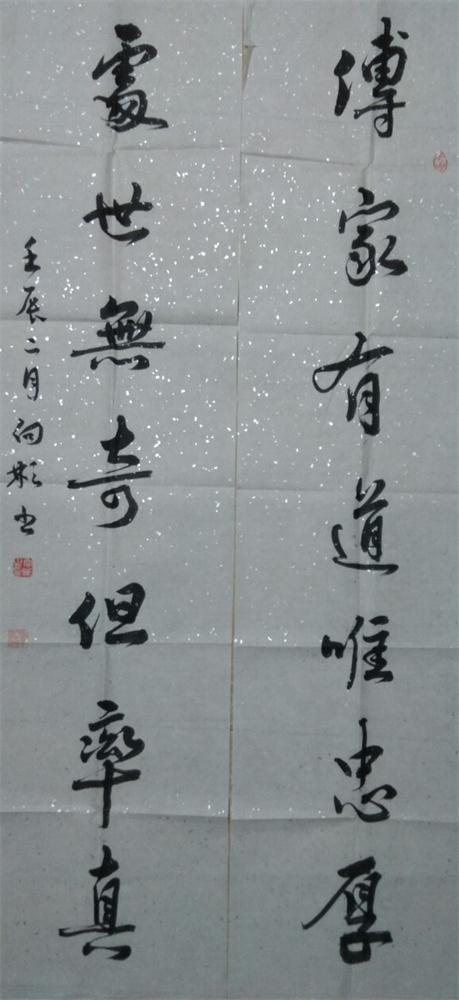 傳家有道唯忠厚
處世無奇但率真
壬辰二月向彬書